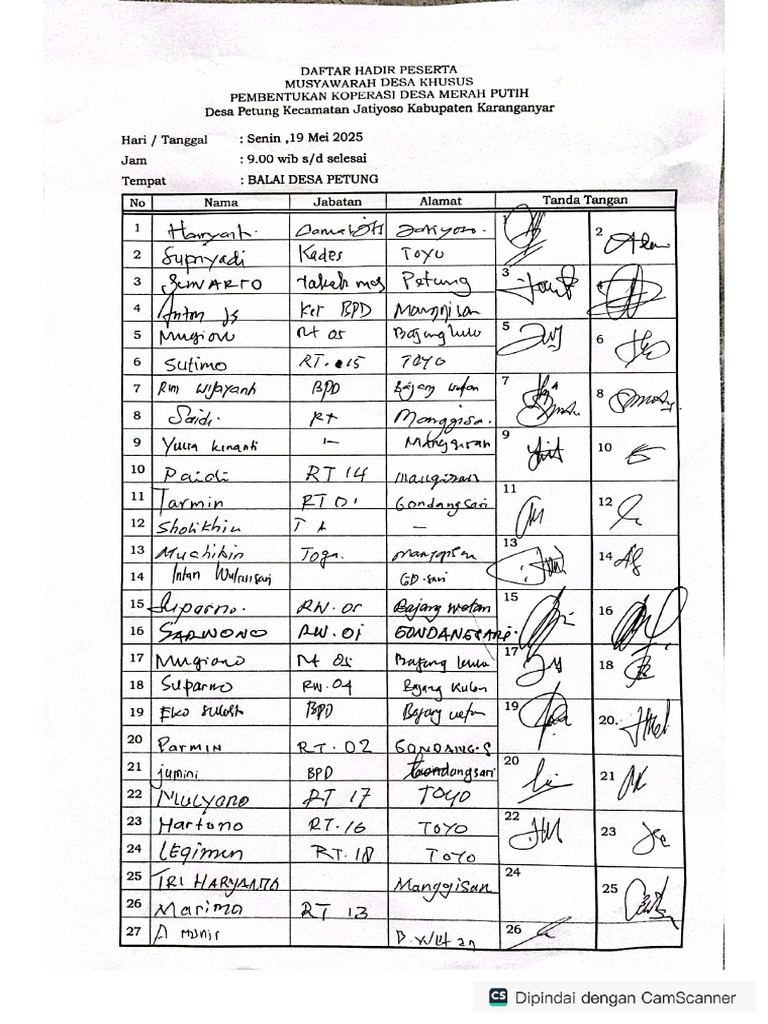 DAFTAR HADIR PESERTA
MUSYAWARAH DESA KHUSUS
PEMBENTUKAN KOPERASI DESA MERAH PUTIH
Desa Petung Kecamatan Jatiyoso Kabupaten Karanganyar
Hari / Tanggal : Senin ,19 Mei 2025
Jam : 9.00 wib s/d selesai
Tempat : BALAI DESA PETUNG
No Nama Jabatan Alamat Tanda Tangan
1 1 2
2 Supriyadi Kades TOYO
3 SUWARTO Petung 3 4
4 Ket BPD Manggisan
5 Mugiono Rt 05 5 6
6 Sutimo RT. 15 TOYO
7 BPD Bajang wetan 7 8
8 Saidi. Rt Manggisa.
9 Yulia Kinanti Manggisan 9 10
10 Paidi RT 14 Manggisan
11 Tarmin RT 01 Gondangsari 11 12
12 Sholikhin –
13 Muchikin Toga. 13 14
14 Intan Wulansari GD.sari
15 Suparno. RW. 05 Bajang wetan 15 16
16 SARWONO RW. 01 GONDANGSARI.
17 Mugiono Rt 05 17 18
18 Suparno RW. 04 Bajang Kulon
19 BPD 19 20.
20 PARMIN RT. 02 GONDANG.S
21 jumini BPD Gondangsari 20 21
22 MULYONO RT 17 TOYO
23 Hartono RT. 16 TOYO 22 23
24 LEGIMEN RT. 18 TOYO
25 TRI HARYANTO Manggisan 24 25
26 Marimo RT 13
27 A Munir 26
CS Dipindai dengan CamScanner